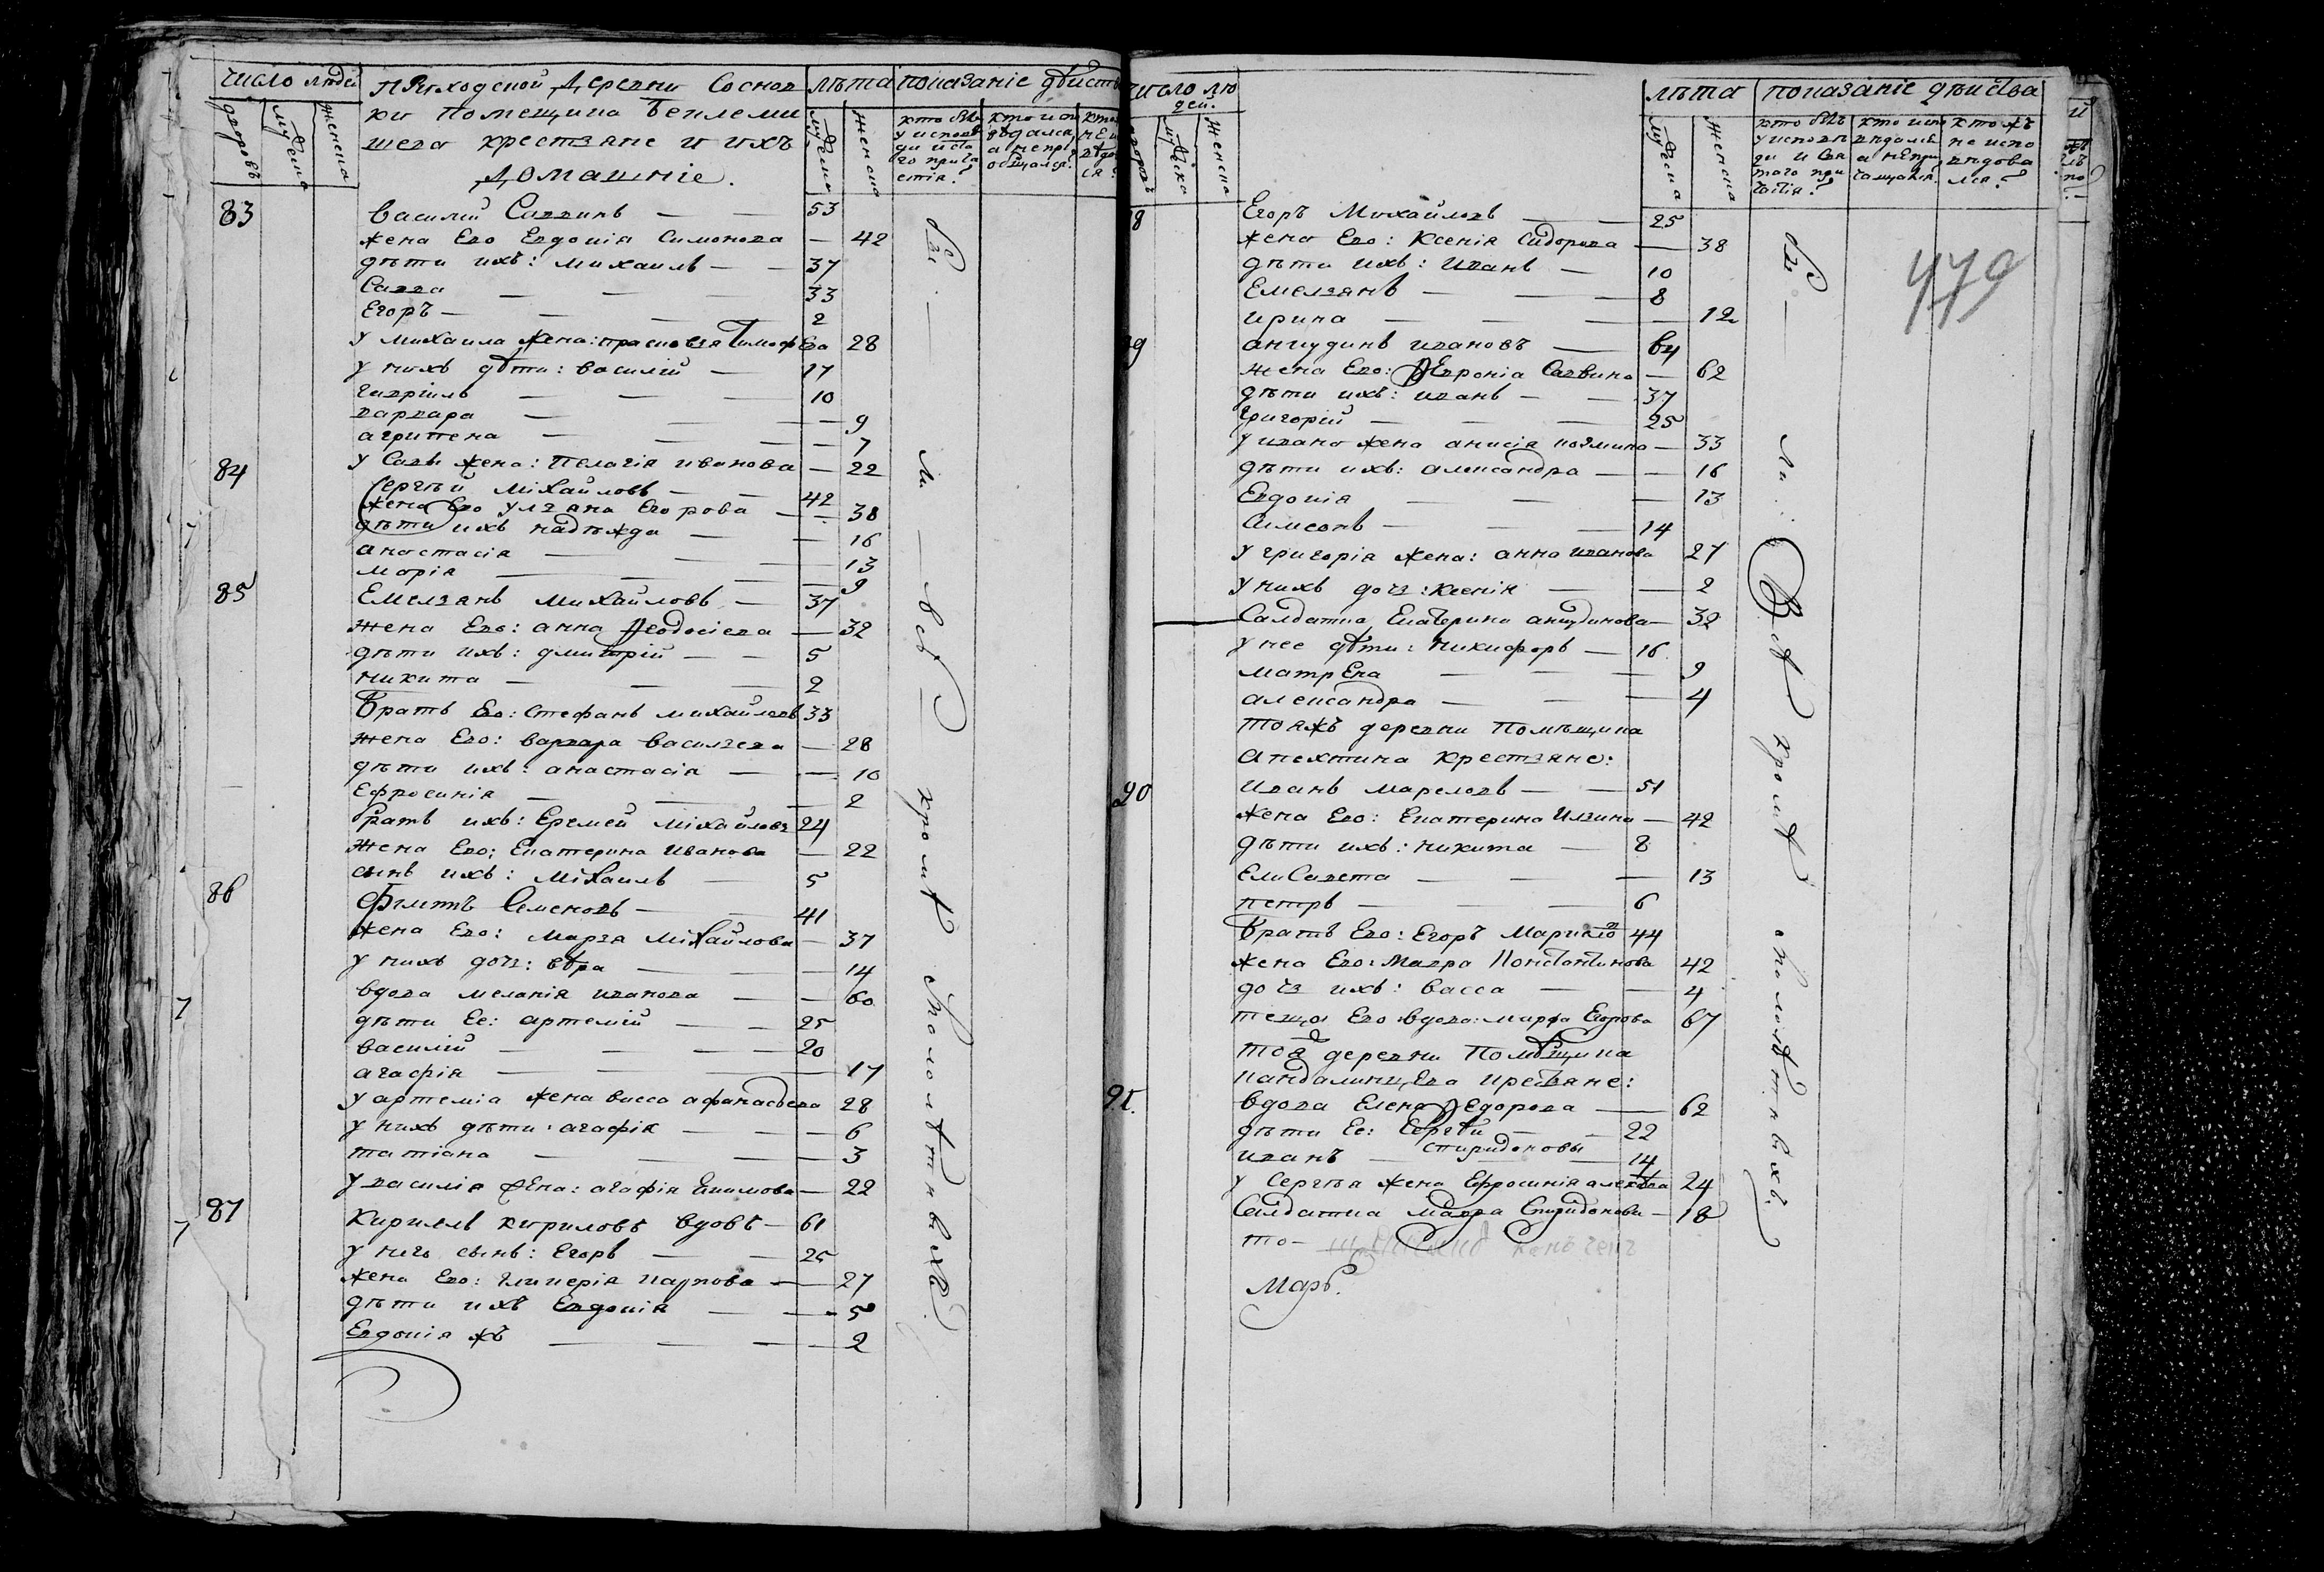 число людей
дворовъ
мужеска
женска
приходской деревни Соснов
ки помещика Беклеми
шева крестьяне и ихъ
домашніе.
лѣта
мужеска
женска
показаніе дѣйств
кто былъ у исповѣди и свято причастія?
83 василий Саввинъ — — 53
жена Его Евдокія Симонова — 42
дѣти ихъ: михаилъ — — 37
Савва — — — 33
Егоръ — — — 2
у михаила жена: прасковья Тимофѣева 28
у нихъ дѣти: василій — 17
гавріилъ — — — 10
варвара — — — 9
агрипена — — — 7
у Савы жена: Пелагія иванова — 22
84 Сергѣй Міхайловъ — — 42
жена Его ульяна Егорова — 38
дѣти ихъ надѣжда — — 16
анастасія — — — 13
марія — — — 9
85 Емельянъ михайловъ — 37
жена Его: анна Ѳеодосіева — 32
дѣти ихъ: дмитрій — — 5
никита — — — 2
Братъ Его: Стефанъ михайловъ 33
жена Его: варвара васильева — 28
дѣти ихъ: анастасія — — 10
Ефросинія — — — 2
Братъ ихъ: Еремей міхайловъ 24
жена Его: Екатерина иванова — 22
сынъ ихъ: Міхаилъ — 5
86 Филиппъ Семеновъ — 41
жена Его: марѳа міхайлова — 37
у нихъ дочь: вѣра — — 14
вдова меланія иванова — — 60
дѣти Ее: артемій — — 25
василій — — — 20
агафія — — — 17
у артемія жена васса афанасьева 28
у нихъ дѣти: агафія — — 6
татіана — — — 3
у василія жена: агафія Екимова — 22
87 Кирилъ кириловъ вдовъ — 61
у него сынъ: Егоръ — — 25
жена Его: гликерія карпова — 27
дѣти ихъ Евдокія — — 5
Евдокія жъ — — — 2
были всѣ кромѣ малолѣтныхъ.
число людей.
дворовъ
мужеска
женска
лѣта
мужеска
женска
показаніе дѣйства
кто былъ у исповѣди и святаго причастія?
кто исповѣдался а не причащался.
кто жъ не исповѣдовался?
479
8 Егоръ Михайловъ — — 25
жена Его: Ксенія Сидорова — 38
дѣти ихъ: иванъ — 10
Емельянъ — — — 8
ирина — — — 12
89 анкудинъ ивановъ — 64
жена Его: Ѳевронія Саввина — 62
дѣти ихъ: иванъ — — 37
григорій — — — 25
у ивана жена анисія козмина — 33
дѣти ихъ: александра — — 16
Евдокія — — — 13
Симеонъ — — — 14
у григорія жена: анна иванова 27
у нихъ дочь: ксенія — — 2
Салдатка Екатерина анкудинова — 32
у нее дѣти: никифоръ — 16
матрена — — — 9
александра — — — 4
тояжъ деревни помѣщика
апехтина крестьяне:
90 иванъ маркеловъ — — 51
жена Его: Екатерина ильина — 42
дѣти ихъ: никита — 8
Елисавета — — — 13
петръ — — — 6
Братъ Его: Егоръ 44
жена Его: мавра Константинова 42
дочь ихъ: васса — — 4
теща Его вдова: марфа Егорова 67
той деревни помѣщика
крестьяне:
91. вдова Елена Ѳедорова — 62
дѣти Ее: Сергѣй — — 22
иванъ спиридоновы 14
у Сергѣя жена Ефросинія алексѣева 24
Салдатка мавра Спиридонова — 18
то —
Марѳ.
были всѣ кромѣ малолѣтныхъ.